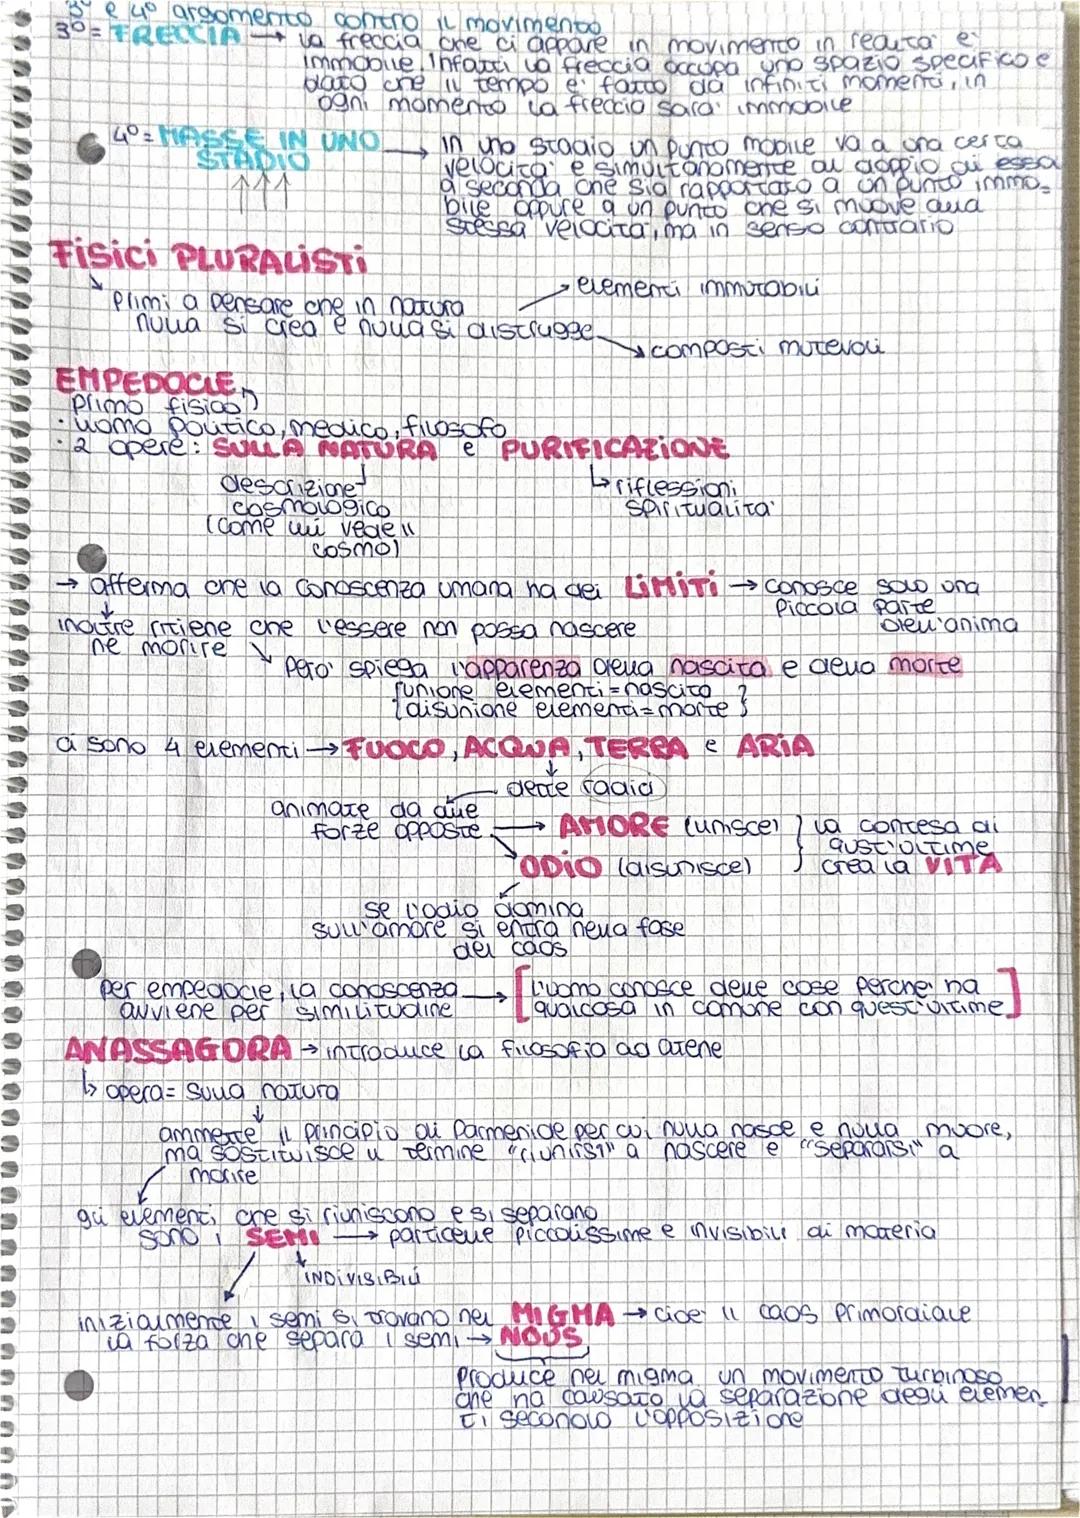 3° e 4° argomento contro il movimento
3° = FRECCIA → la freccia che ci appare in movimento in realtà è
immobile. Infatti la freccia occupa uno spazio specifico e
dato che il tempo è fatto da infiniti momenti, in
ogni momento la freccia sarà immobile
4° = MASSE IN UNO STADIO → In uno stadio un punto mobile va a una certa
velocità e simultanomente al doppio di essa
a seconda che sia rapportato a un punto immo-
bile oppure a un punto che si muove alla
stessa velocità, ma in senso contrario
FISICI PLURALISTI
Primi a pensare che in natura
nulla si crea e nulla si distrugge
→ elementi immutabili
→ composti mutevoli
EMPEDOCLE
Primo fisico
· uomo politico, medico, filosofo
· 2 opere: SULLA NATURA e PURIFICAZIONE
descrizione
cosmologico
(come lui vede il
cosmo)
↳ riflessioni
spiritualità
→ afferma che la conoscenza umana ha dei LIMITI → conosce solo una
piccola parte
dell'anima
inoltre ritiene che l'essere non possa nascere
ne morire
però spiega l'apparenza della nascita e della morte
{unione elementi = nascita
disunione elementi = morte}
ci sono 4 elementi → FUOCO, ACQUA, TERRA e ARIA
dette radici
animate da due
forze opposte
→ AMORE (unisce)
ODIO (disunisce)
} la contesa di
qust'ultime
crea la VITA
se l'odio domina
sull'amore si entra nella fase
del caos
per empedocle, la conoscenza
avviene per similitudine
→ [L'uomo conosce delle cose perché ha
qualcosa in comune con quest'ultime]
ANASSAGORA → introduce la filosofia ad atene
↳ opera = Sulla natura
ammette il principio di Parmenide per cui nulla nasce e nulla muore,
ma sostituisce il termine "riunirsi" a nascere e "separarsi" a
morire
gli elementi che si riuniscono e si separano
sono i SEMI → particelle piccolissime e invisibili di materia
INDIVISIBILI
inizialmente i semi si trovano nel MIGMA → cioè il caos primordiale
la forza che separa i semi → NOUS
Produce nel migma un movimento turbinoso
che ha causato la separazione degli elemen-
ti secondo l'opposizione